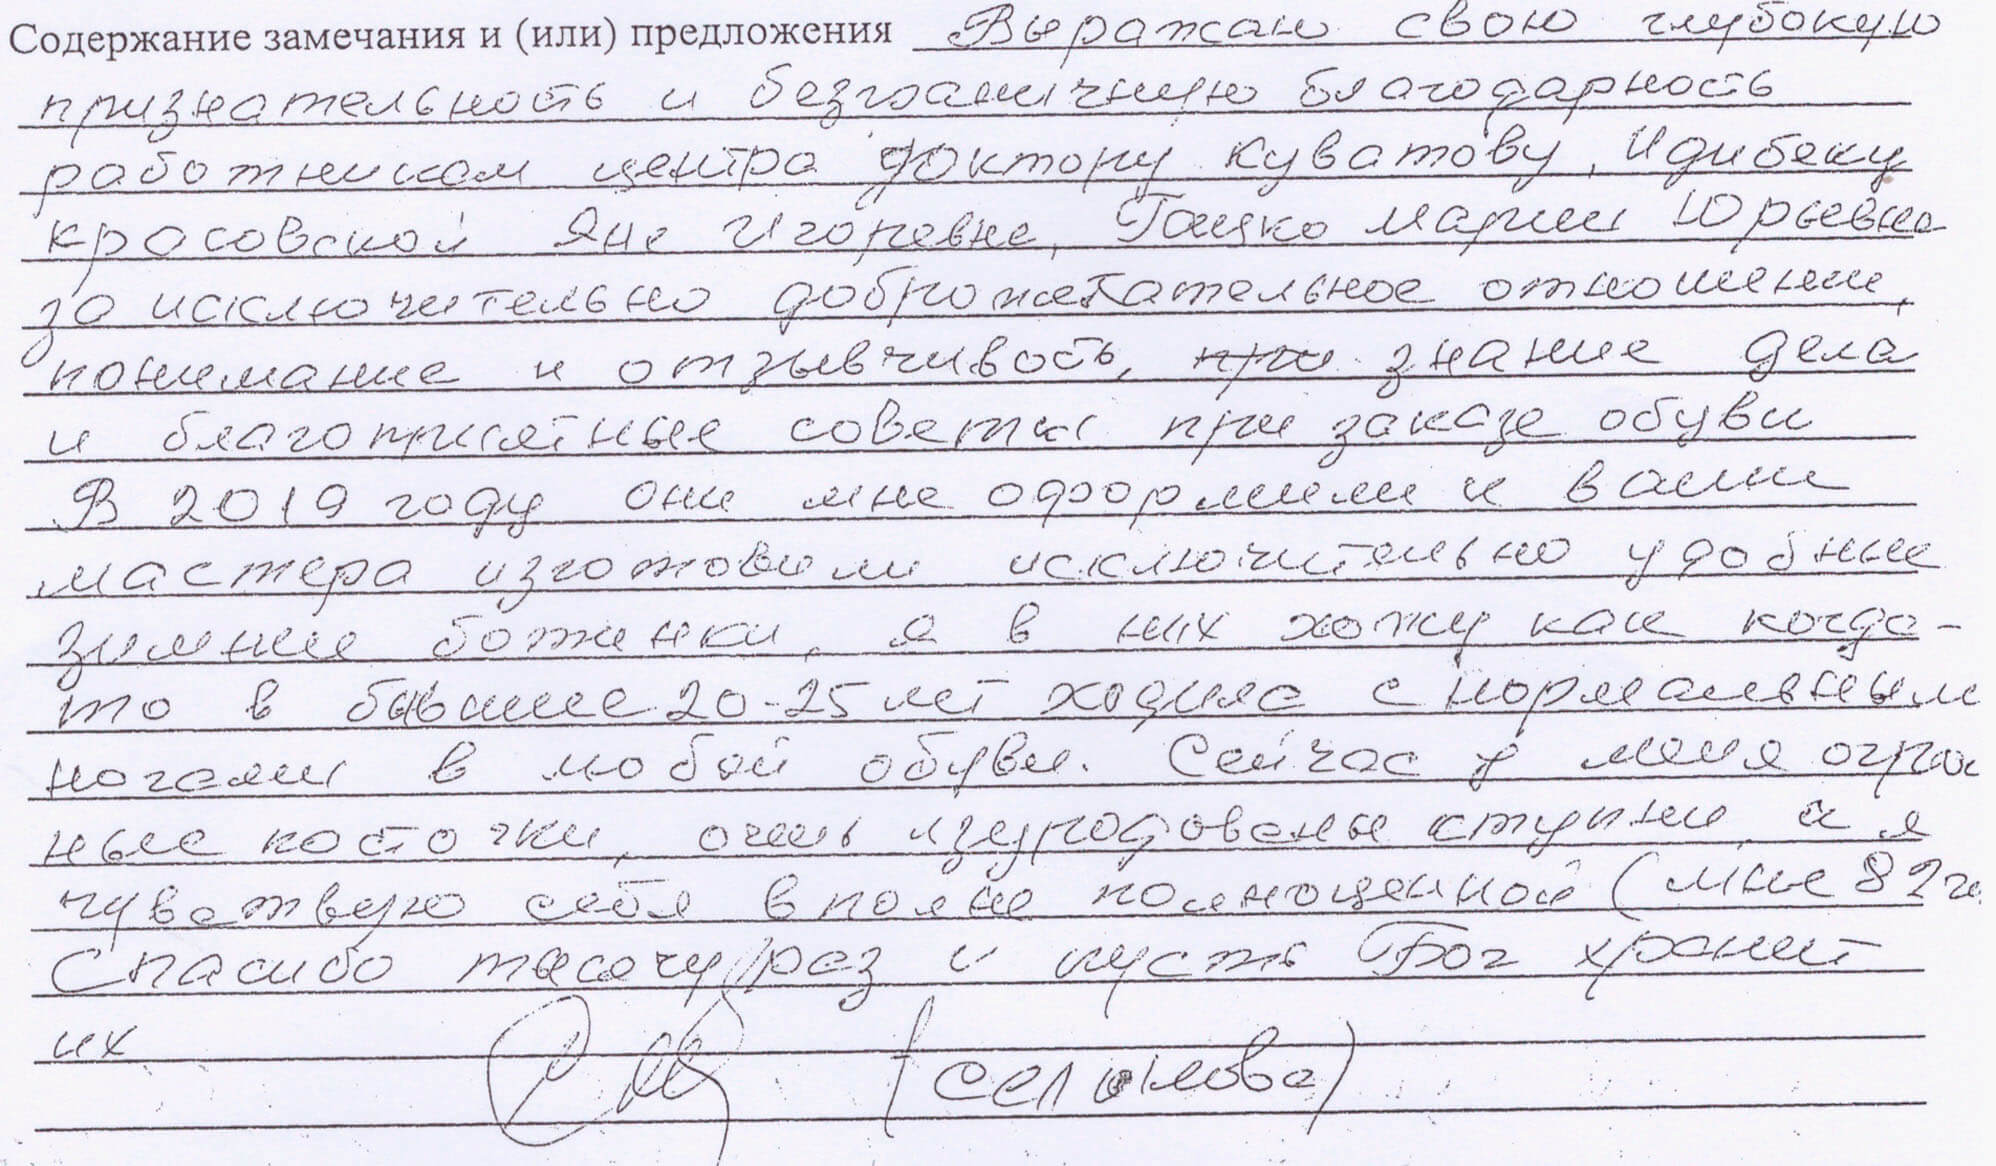 Содержание замечания и (или) предложения Выражаю свою глубокую
признательность и безграничную благодарность
работникам центра доктору Куватову, Идибеку
Красовской Яне Игоревне, Марии Юрьевне
за исключительно доброжелательное отношение,
понимание и отзывчивость, знание дела
и благоприятные советы при заказе обуви
В 2019 году они мне оформили и ваши
мастера изготовили исключительно удобные
зимние ботинки, я в них хожу как когда-
то в бывшие 20-25 лет ходила с нормальными
ногами в любой обуви. Сейчас у меня
ные косточки, очень изуродованы ступни, а я
чувствую себя вполне полноценной (мне 82 г
Спасибо тысячу раз и пусть Бог хранит
их